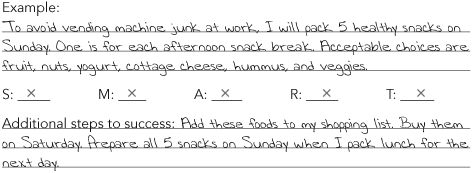 Example:
To avoid vending machine junk at work, I will pack 5 healthy snacks on
Sunday. One is for each afternoon snack break. Acceptable choices are
fruit, nuts, yogurt, cottage cheese, hummus, and veggies.
S: × M: × A: × R: × T: ×
Additional steps to success: Add these foods to my shopping list. Buy them
on Saturday. Prepare all 5 snacks on Sunday when I pack lunch for the
next day.